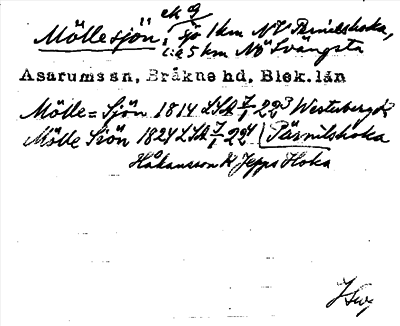 ek G
Möllesjön, sjö 1 km NV Pärnilshoka,
c:a 5 km NÖ Svängsta
Asarums sn, Bräkne hd, Blek. län
Mölle=Sjön 1814 LSA 7/1 22³ Westuberg
Mölle Siön 1824 LSA 7/1 22⁴ Pärnilshoka
Håkansson K Jepps Hoka